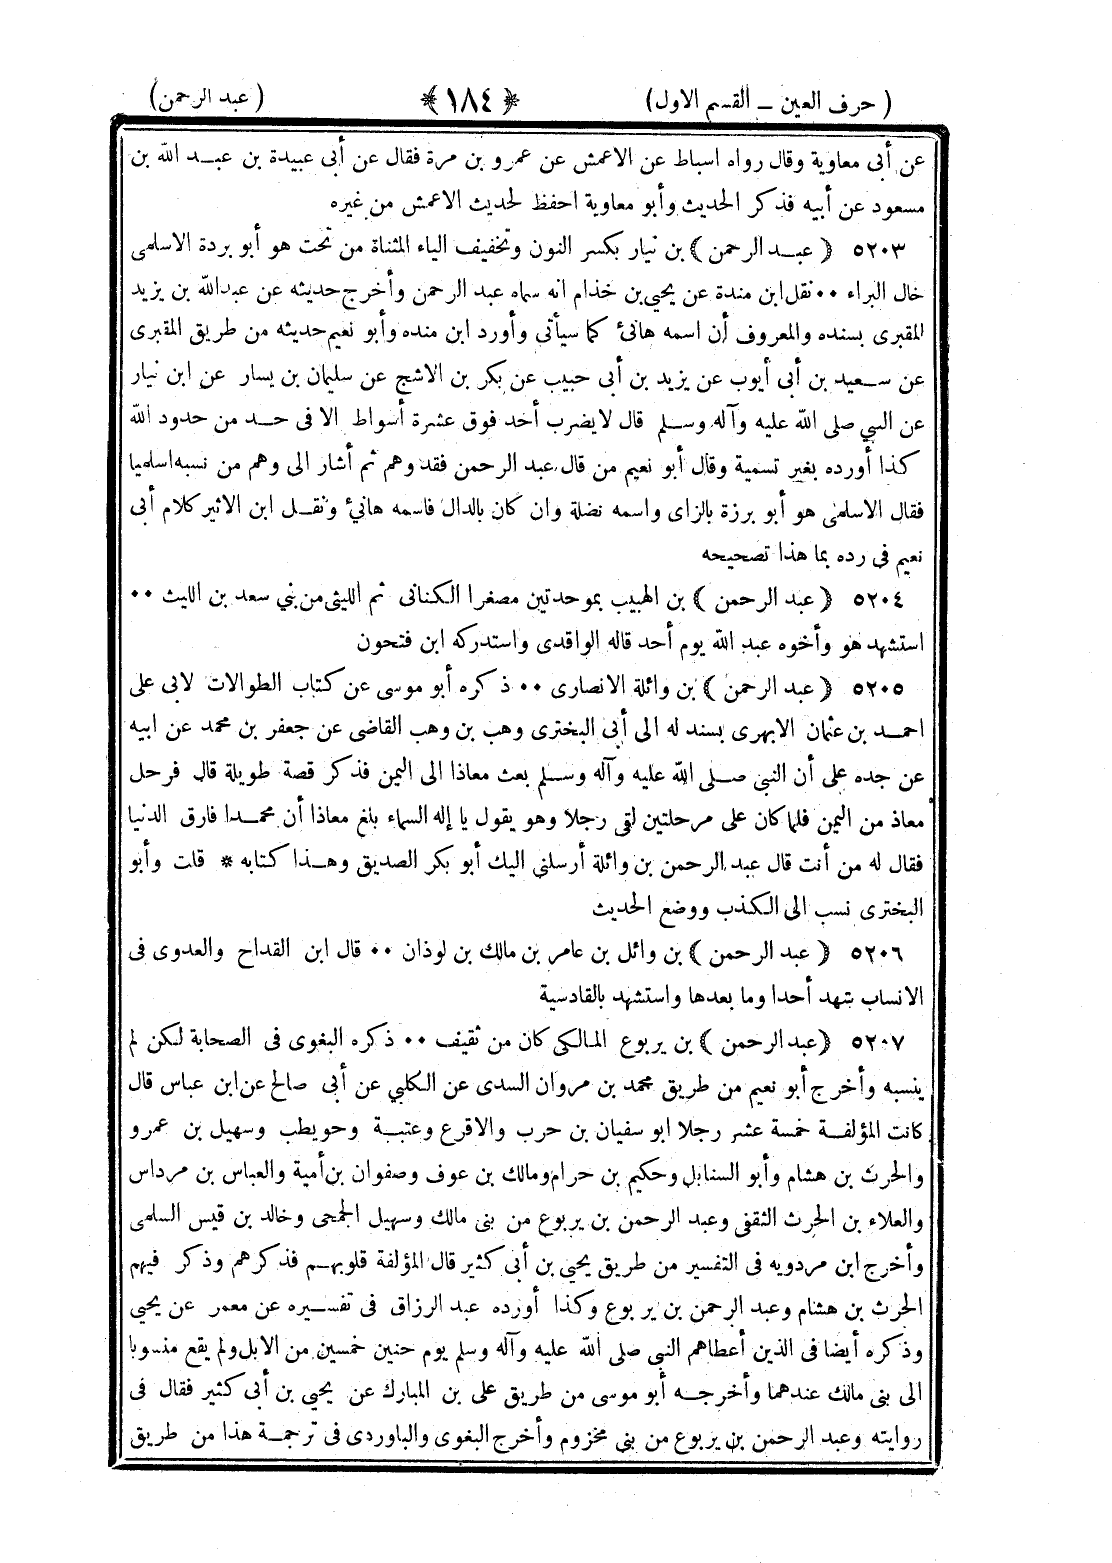 ( حرف العين ــ القسم الاول ) ﴿ ١٨٤ ﴾ ( عبد الرحمن )
عن أبى معاوية وقال رواه اسباط عن الاعمش عن عمرو بن مرة فقال عن أبى عبيدة بن عبد الله بن
مسعود عن أبيه فذكر الحديث وأبو معاوية احفظ لحديث الاعمش من غيره
٥٢٠٣ ﴿ عبد الرحمن ﴾ بن نيار بكسر النون وتخفيف الياء المثناة من تحت هو أبو بردة الاسلمى
خال البراء ٠٠ نقل ابن مندة عن يحيى بن خذام انه سماه عبد الرحمن وأخرج حديثه عن عبدالله بن يزيد
المقبرى بسنده والمعروف أن اسمه هانئ كما سيأتى وأورد ابن منده وأبو نعيم حديثه من طريق المقبرى
عن سعيد بن أبى أيوب عن يزيد بن أبى حبيب عن بكر بن الاشج عن سليمان بن يسار عن ابن نيار
عن النبي صلى الله عليه وآله وسلم قال لايضرب أحد فوق عشرة أسواط الا فى حد من حدود الله
كذا أورده بغير تسمية وقال أبو نعيم من قال عبد الرحمن فقد وهم ثم أشار الى وهم من نسبه اسلميا
فقال الاسلمى هو أبو برزة بالزاى واسمه نضلة وان كان بالدال فاسمه هانئ ونقل ابن الاثير كلام أبى
نعيم فى رده بما هذا تصحيحه
٥٢٠٤ ﴿ عبد الرحمن ﴾ بن الهبيب بموحدتين مصغرا الكنانى ثم الليثى من بني سعد بن الليث ٠٠
استشهد هو وأخوه عبد الله يوم أحد قاله الواقدى واستدركه ابن فتحون
٥٢٠٥ ﴿ عبد الرحمن ﴾ بن وائلة الانصارى ٠٠ ذكره أبو موسى عن كتاب الطوالات لابى على
احمد بن عثمان الابهرى بسند له الى أبى البخترى وهب بن وهب القاضى عن جعفر بن محمد عن ابيه
عن جده على أن النبى صلى الله عليه وآله وسلم بعث معاذا الى اليمن فذكر قصة طويلة قال فرحل
معاذ من اليمن فلما كان على مرحلتين لقى رجلا وهو يقول يا إله السماء بلغ معاذا أن محمدا فارق الدنيا
فقال له من أنت قال عبد الرحمن بن وائلة أرسلني اليك أبو بكر الصديق وهذا كتابه * قلت وأبو
البخترى نسب الى الكذب ووضع الحديث
٥٢٠٦ ﴿ عبد الرحمن ﴾ بن وائل بن عامر بن مالك بن لوذان ٠٠ قال ابن القداح والعدوى فى
الانساب شهد أحدا وما بعدها واستشهد بالقادسية
٥٢٠٧ ﴿عبد الرحمن ﴾ بن يربوع المالكى كان من ثقيف ٠٠ ذكره البغوى فى الصحابة لكن لم
ينسبه وأخرج أبو نعيم من طريق محمد بن مروان السدى عن الكلبي عن أبى صالح عن ابن عباس قال
كانت المؤلفة خمسة عشر رجلا ابو سفيان بن حرب والاقرع وعتبة وحويطب وسهيل بن عمرو
والحرث بن هشام وأبو السنابل وحكيم بن حرام ومالك بن عوف وصفوان بن أمية والعباس بن مرداس
والعلاء بن الحرث الثقفى وعبد الرحمن بن يربوع من بنى مالك وسهيل الجمحى وخالد بن قيس السلمى
وأخرج ابن مردويه فى التفسير من طريق يحيى بن أبى كثير قال المؤلفة قلوبهم فذكرهم وذكر فيهم
الحرث بن هشام وعبد الرحمن بن يربوع وكذا أورده عبد الرزاق فى تفسيره عن معمر عن يحيى
وذكره أيضا فى الذين أعطاهم النبى صلى الله عليه وآله وسلم يوم حنين خمسين من الابل ولم يقع منسوبا
الى بنى مالك عندهما وأخرجه أبو موسى من طريق على بن المبارك عن يحيى بن أبى كثير فقال فى
روايته وعبد الرحمن بن يربوع من بنى مخزوم وأخرج البغوى والباوردى فى ترجمة هذا من طريق